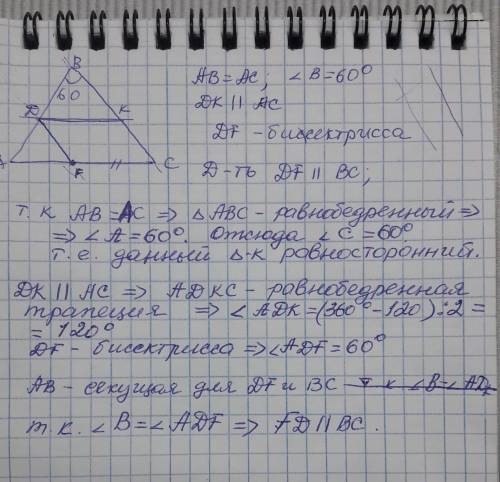 B
60
D K
A F C
AB = AC; ∠B = 60°
DK || AC
DF - биссектрисса
Д-ть DF || BC;
т.к AB = AC => △ABC - равнобедренный =>
=> ∠A = 60°. Отсюда ∠C = 60°
т.е. данный △-к равносторонний.
DK || AC => ADKC - равнобедренная
трапеция => ∠ADK = (360° - 120) : 2 =
= 120°
DF - биссектрисса => ∠ADF = 60°
AB - секущая для DF и BC т к ∠B = ∠ADF
т.к. ∠B = ∠ADF => FD || BC.